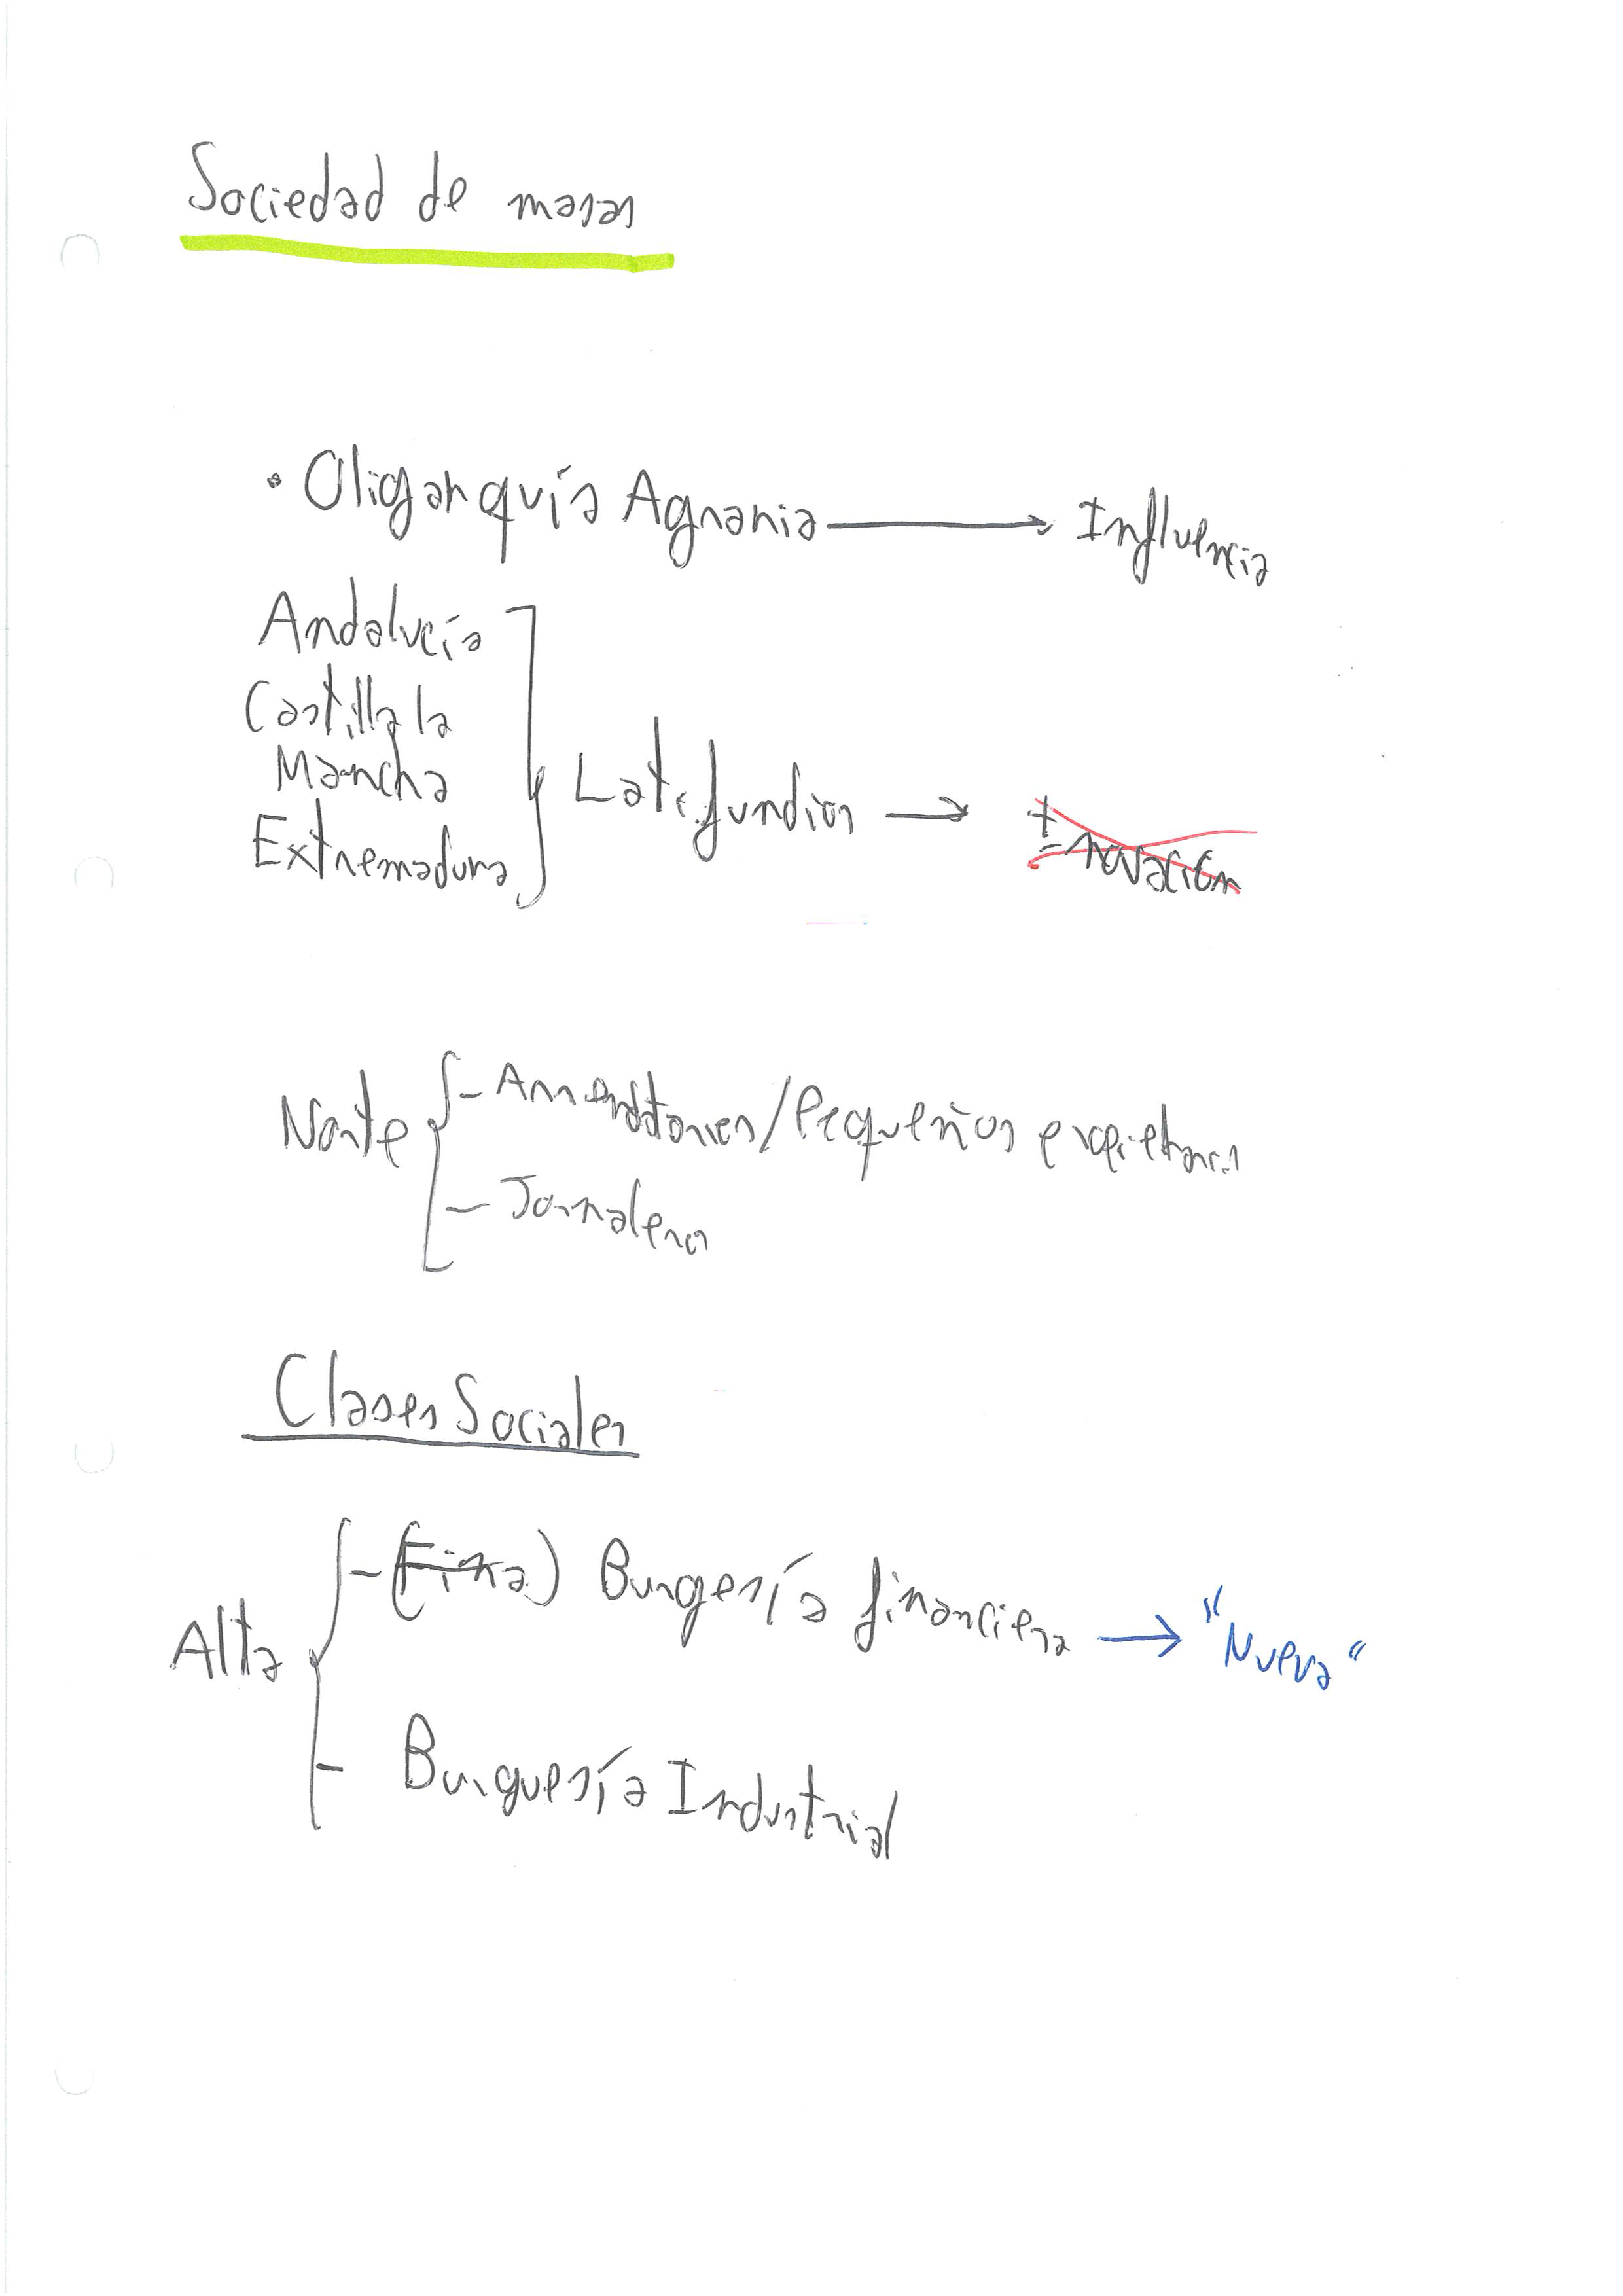 Sociedad de masas
• Oligarquía Agraria → Influencia
Andalucía
Castilla la
Mancha
Extremadura
Latifundios →
Norte
- Arrendatarios/Pequeños
- Jornaleros
Clases Sociales
Alta
- (Fina) Burgesía financiera → "Nueva"
- Burguesía Industrial